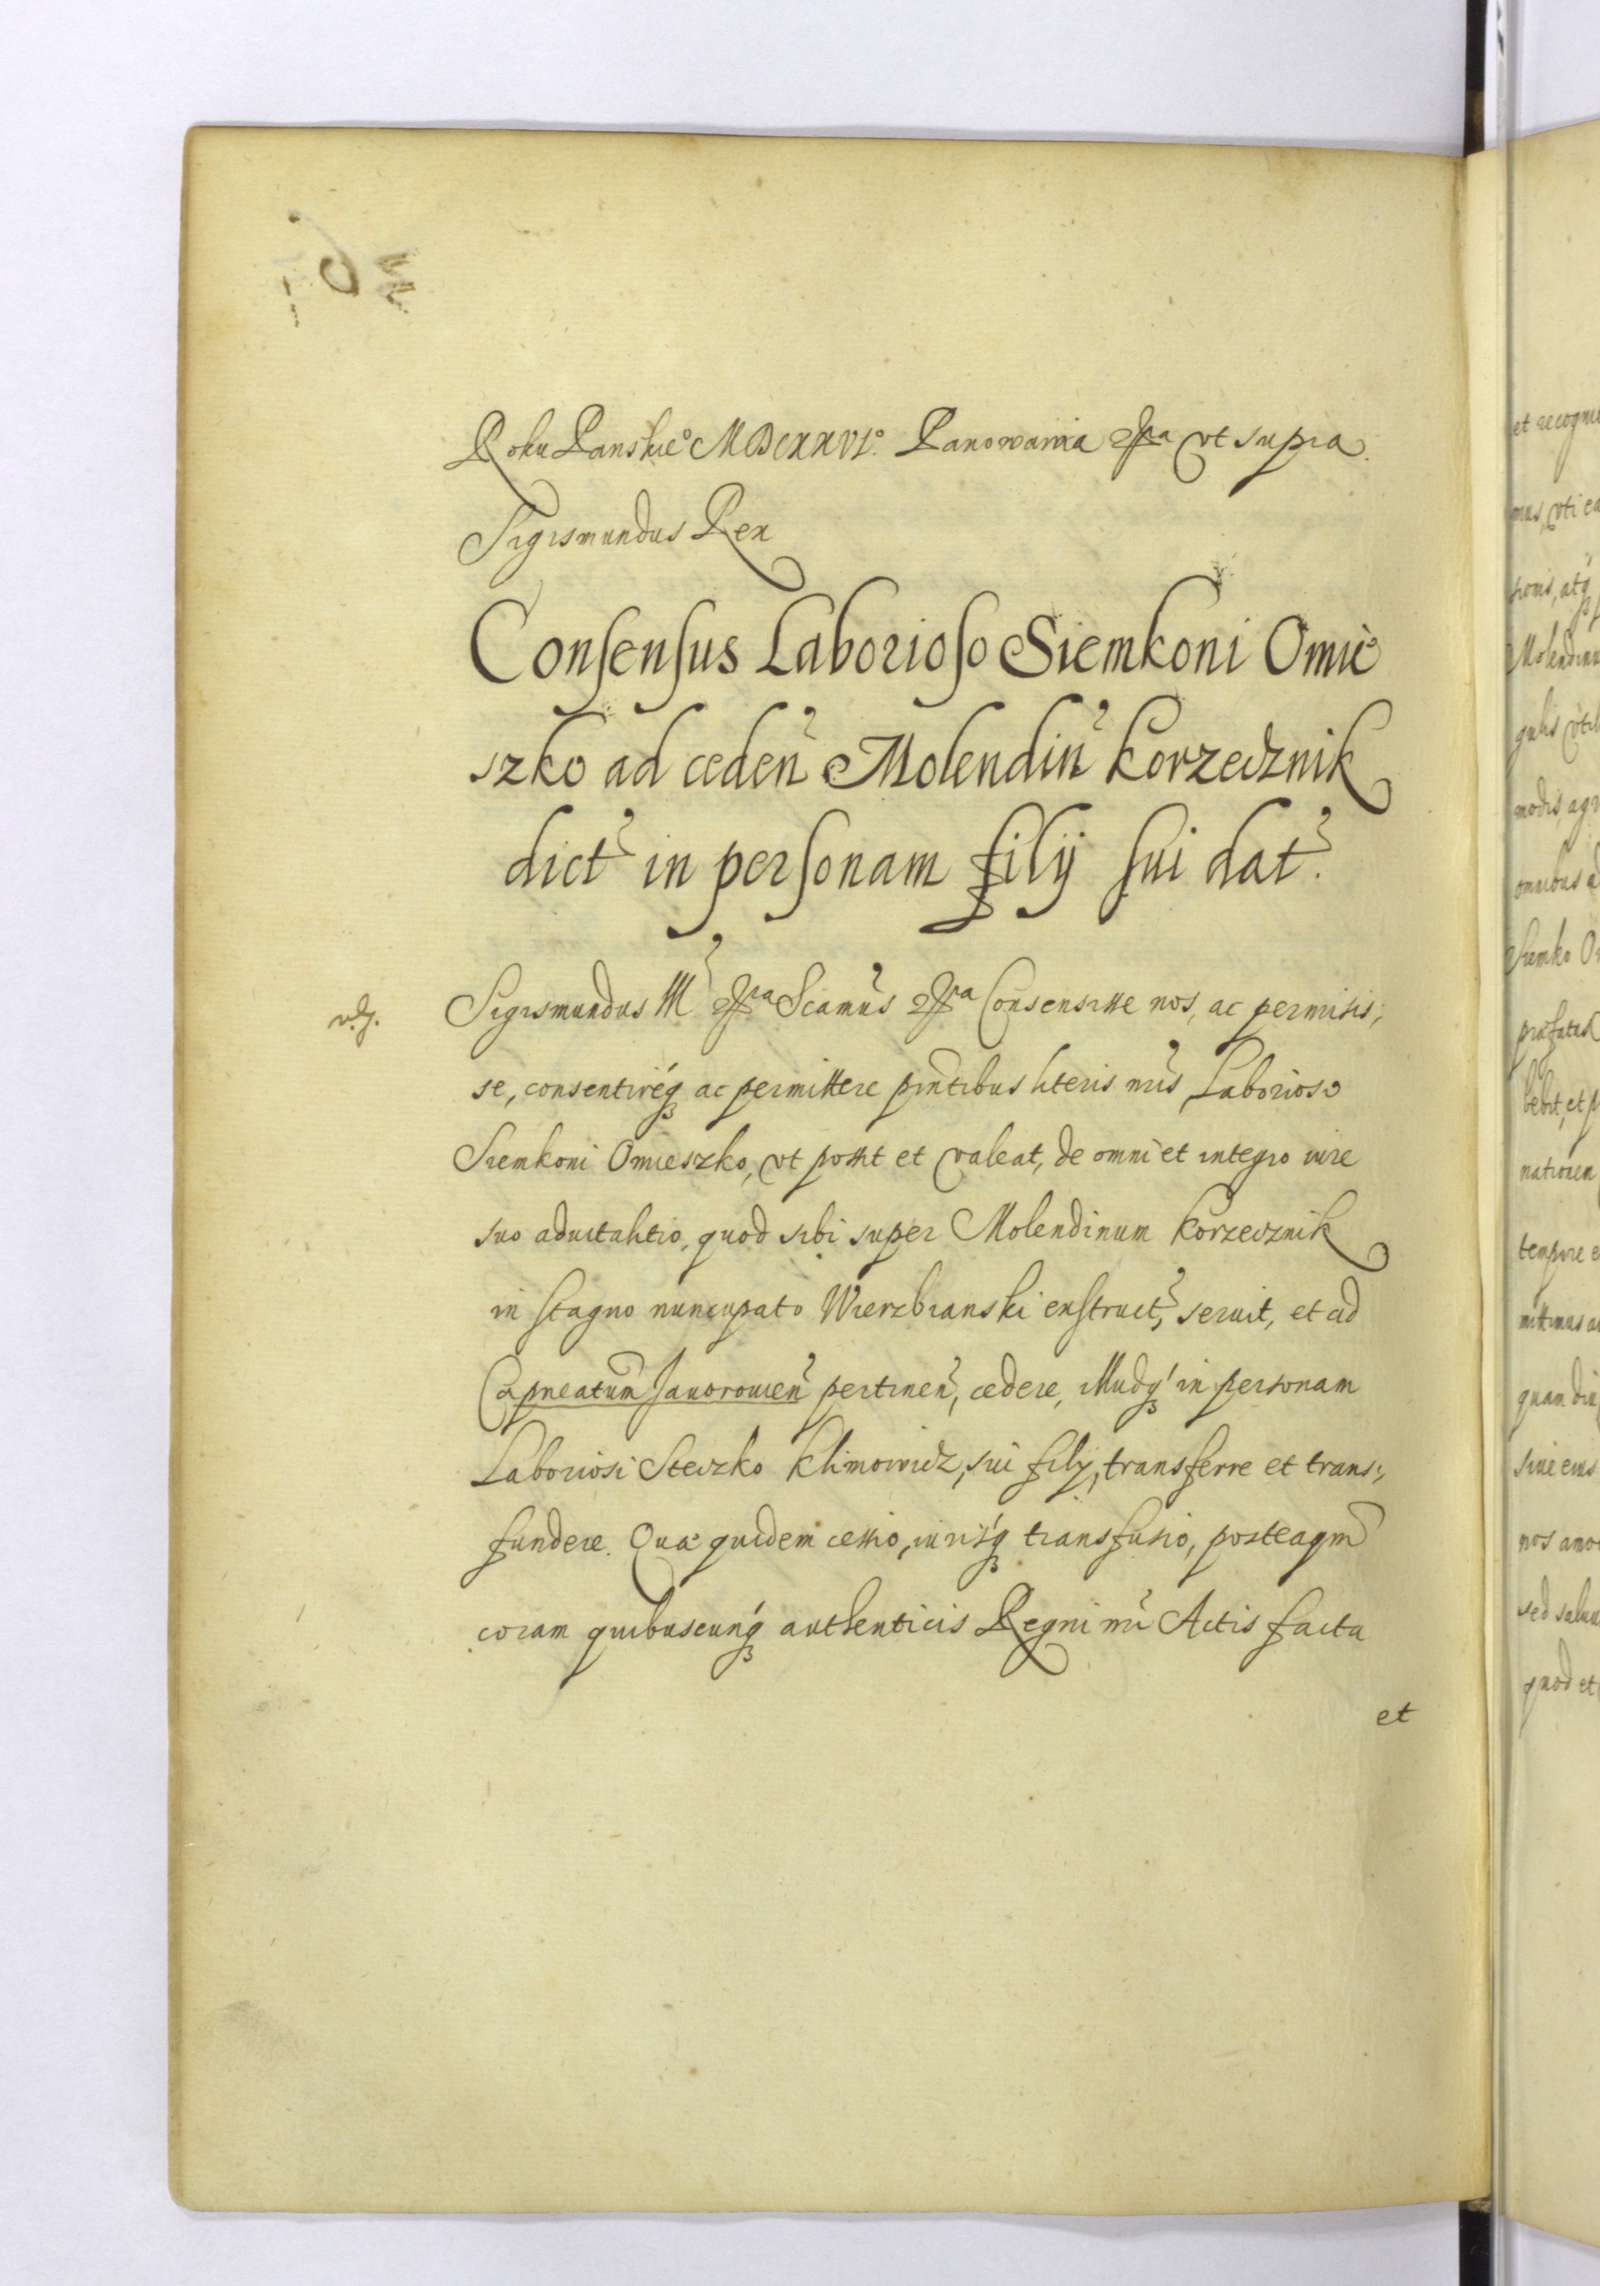 Roku Panskie° MDCXXVI° Panowania etc ut supra.
Sigismundus Rex
Consensus Laborioso Siemkoni Omie
szko ad ceden Molendin Korzecznik
dict in personam filij sui dat.
Sigismundus III etc Scamus etc Consensisse nos, ac permisis,
se, consentireq ac permittere pntibus literis nris, Laborioso
Siemkoni Omieszko, vt possit et valeat, de omni et integro iure
suo aduitalitio, quod sibi super Molendinum Korzecznik
in stagno nuncupato Wierzbianski exstruct, seruit, et ad
Capneatum Jauorouien pertinen, cedere, illudq in personam
Laboriosi Steczko Klimowicz, sui filij, transferre et trans,
fundere. Quæ quidem cessio, iurisq transfusio, posteaqm
coram quibuscunq authenticis Regni nri Actis facta
et